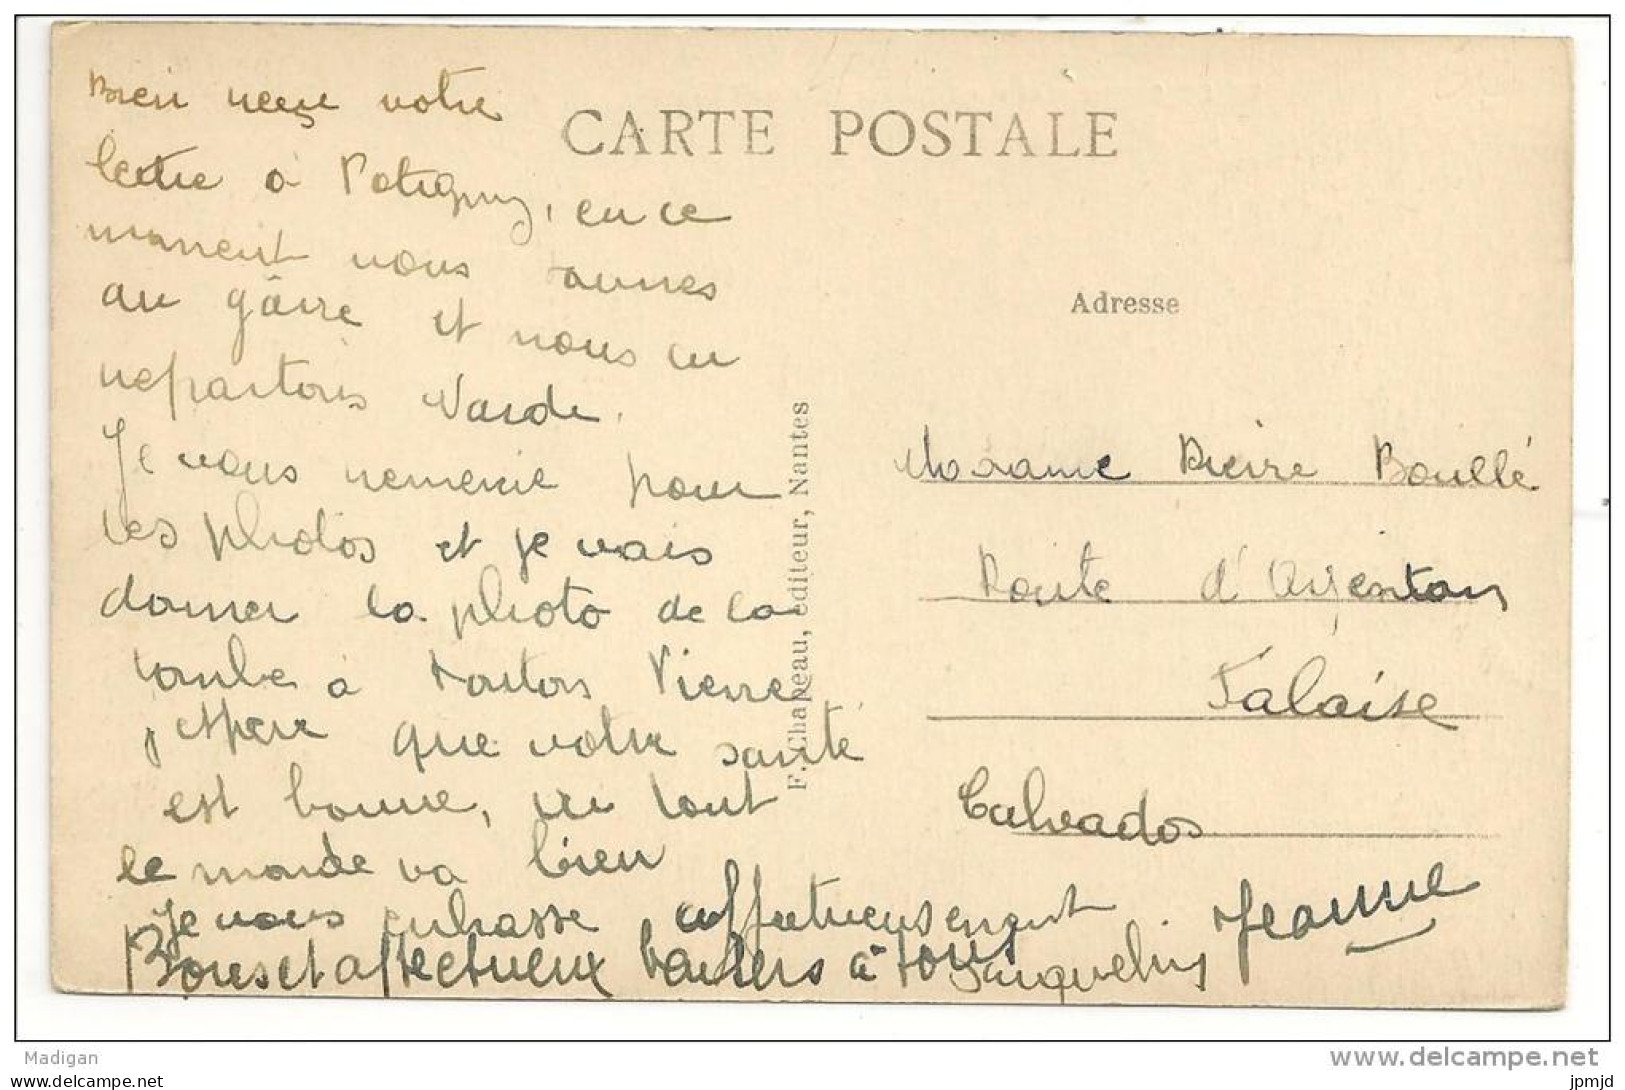 CARTE POSTALE
Bien reçu votre
lettre à Potigny, en ce
moment nous sommes
au gâvre et nous en
repartons Mardi.
Je vous remercie pour
les photos et je vais
donner la photo de la
tombe à tonton Pierre
j'espère que votre santé
est bonne, ici tout
le monde va bien
Je vous embrasse affectueusement
Jacqueline
Bons et affectueux baisers à tous
Jeanne
F. Chapeau, éditeur, Nantes
Adresse
Madame Pierre Boullé
Route d'Argentan
Falaise
Calvados
Madigan
www.delcampe.net
delcampe.net
jpmjd